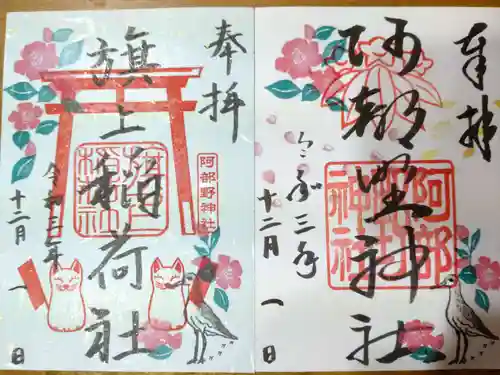 奉拝
阿部野神社
阿部野神社
令和三年
十二月 一日
奉拝
阿部野神社
旗上稲荷社
令和三年
十二月 一日